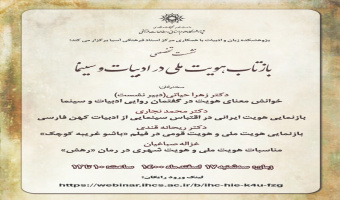 پژوهشکده زبان و ادبیات با همکاری مرکز اسناد فرهنگی آسیا برگزار می کند:
نشست تخصصی
بازتاب هویت ملی در ادبیات و سینما
سخنرانان:
دکتر زهرا حیاتی(دبیر نشست)
خوانش معنای هویت در گفتمان روایی ادبیات و سینما
دکتر محمد نجاری
بازنمایی هویت ایرانی در اقتباس سینمایی از ادبیات کهن فارسی
دکتر ریحانه قندی
بازنمایی هویت ملی و هویت قومی در فیلم «باشو غریبه کوچک»
غزاله صباغیان
مناسبات هویت ملی و هویت شهری در رمان «رهش»
زمان: سه شنبه ۱۷ اسفندماه ۱۴۰۰ ساعت: ۱۰ تا ۱۲
لینک ورود رایگان:
https://webinar.ihcs.ac.ir/b/ihc-hie-k4u-fzg